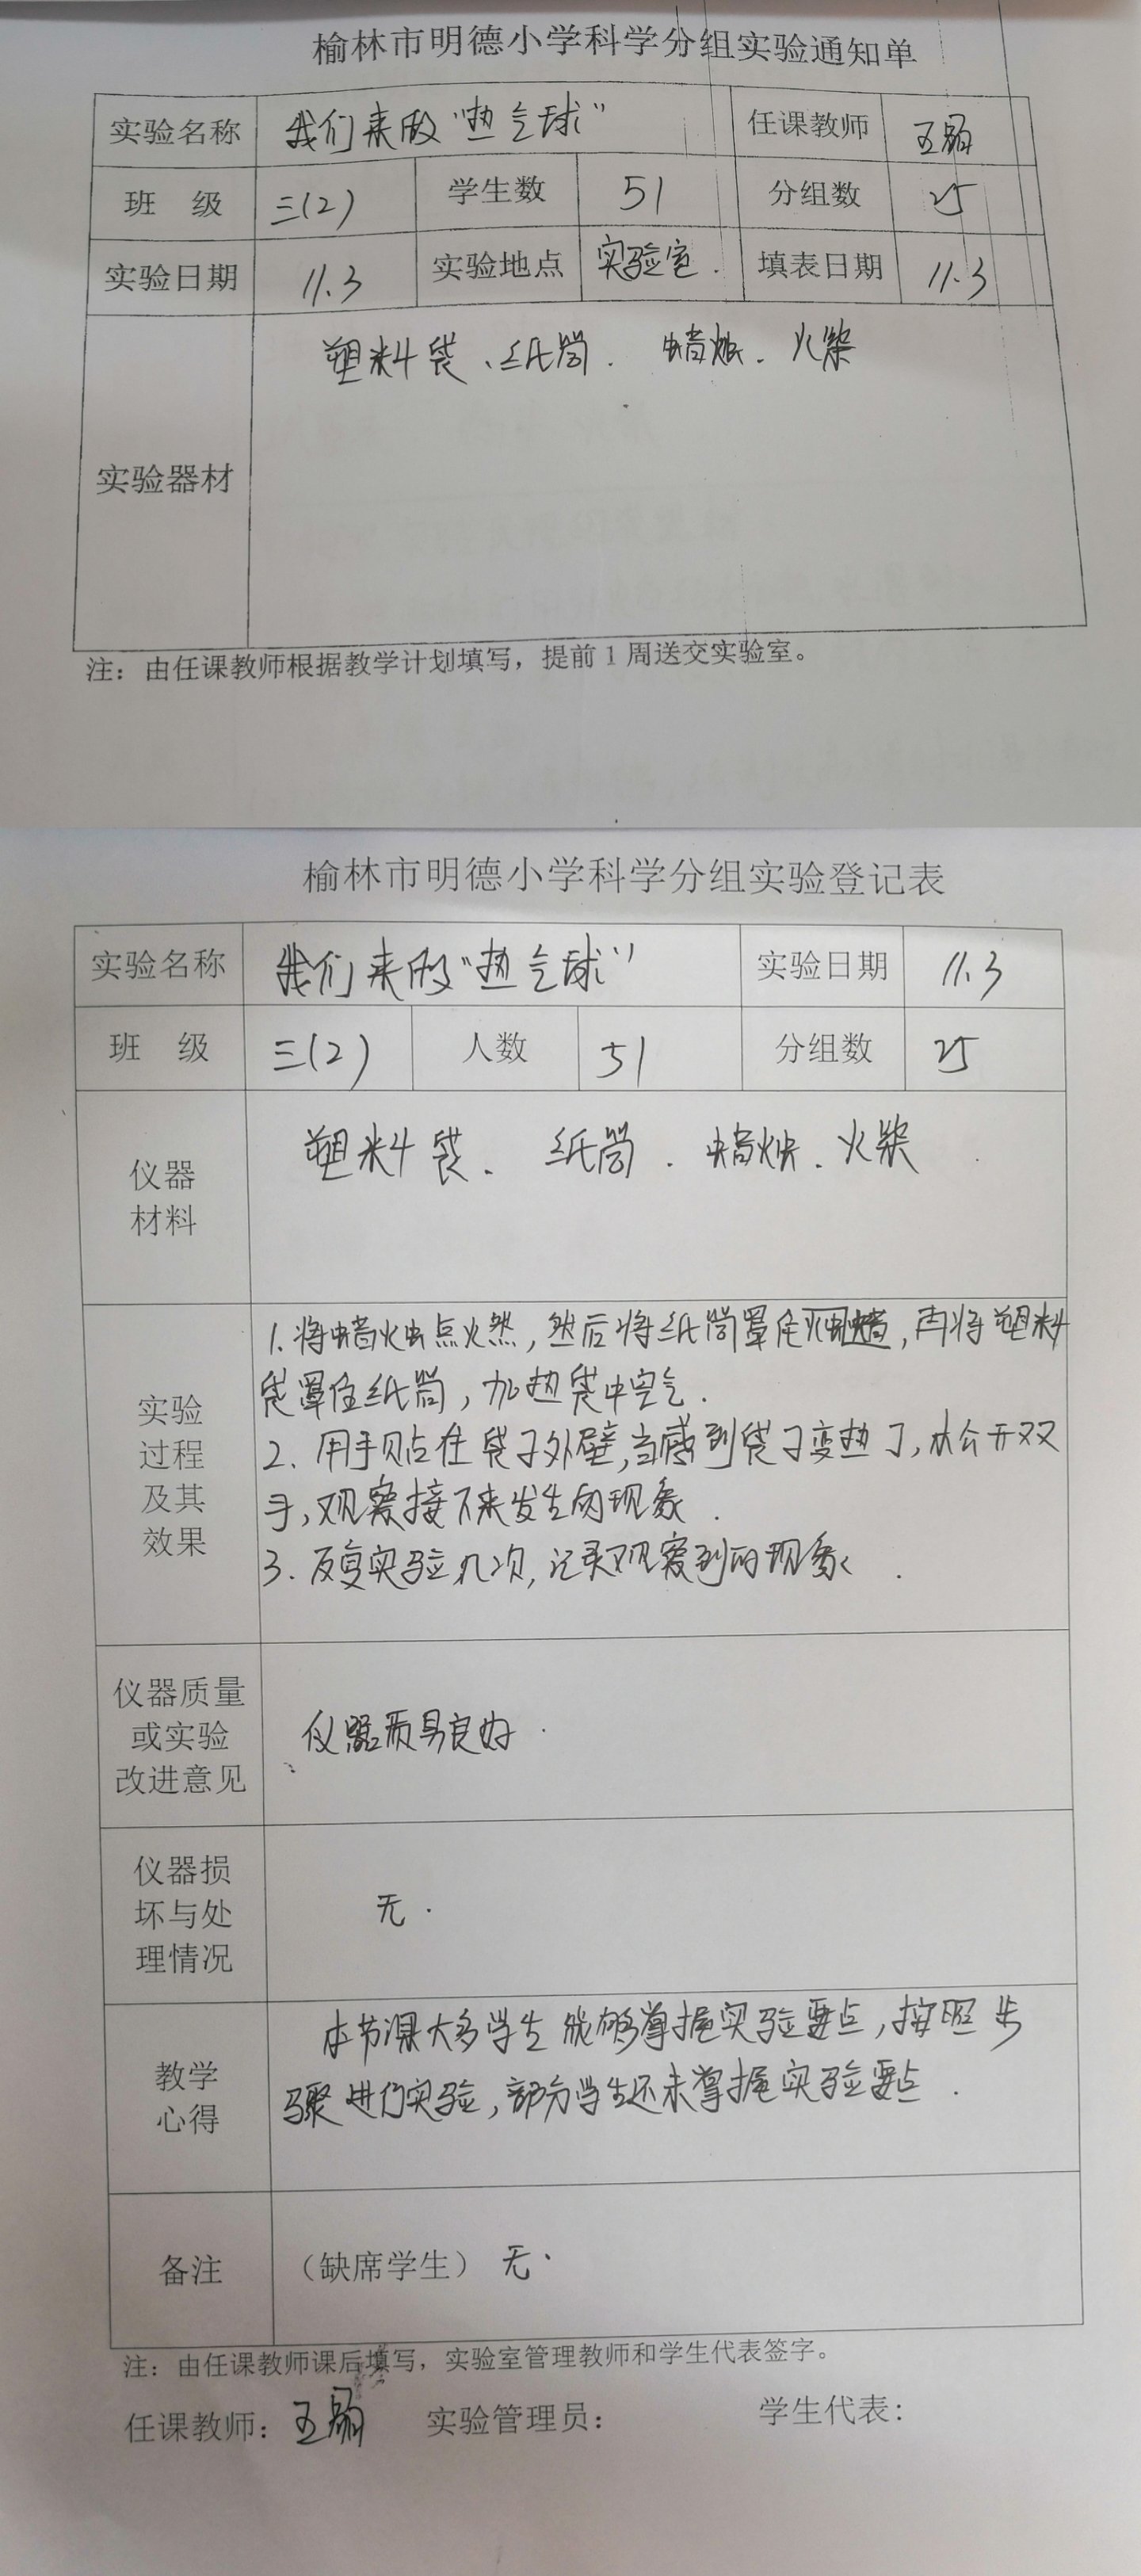 榆林市明德小学科学分组实验通知单
实验名称 我们来做“热气球” 任课教师 王
班 级 三(2) 学生数 51 分组数 25
实验日期 11.3 实验地点 实验室. 填表日期 11.3
实验器材 塑料袋、纸筒. 蜡烛. 火柴
注：由任课教师根据教学计划填写，提前1周送交实验室。
榆林市明德小学科学分组实验登记表
实验名称 我们来做“热气球” 实验日期 11.3
班 级 三(2) 人数 51 分组数 25
仪器
材料
塑料袋、 纸筒. 蜡烛. 火柴
实验
过程
及其
效果
1.将蜡烛点燃,然后将纸筒罩住蜡,再将塑料
袋罩住纸筒,加热袋中空气.
2.用手贴在袋子外壁,当感到袋子变热了,松开双
手,观察接下来发生的现象.
3.反复实验几次,记录观察到的现象.
仪器质量
或实验
改进意见
仪器质量良好.
仪器损
坏与处
理情况
无.
教学
心得
本节课大多学生能够掌握实验要点,按照步
骤进行实验,部分学生还未掌握实验要点.
备注 （缺席学生）无.
注：由任课教师课后填写，实验室管理教师和学生代表签字。
任课教师：王 实验管理员： 学生代表：